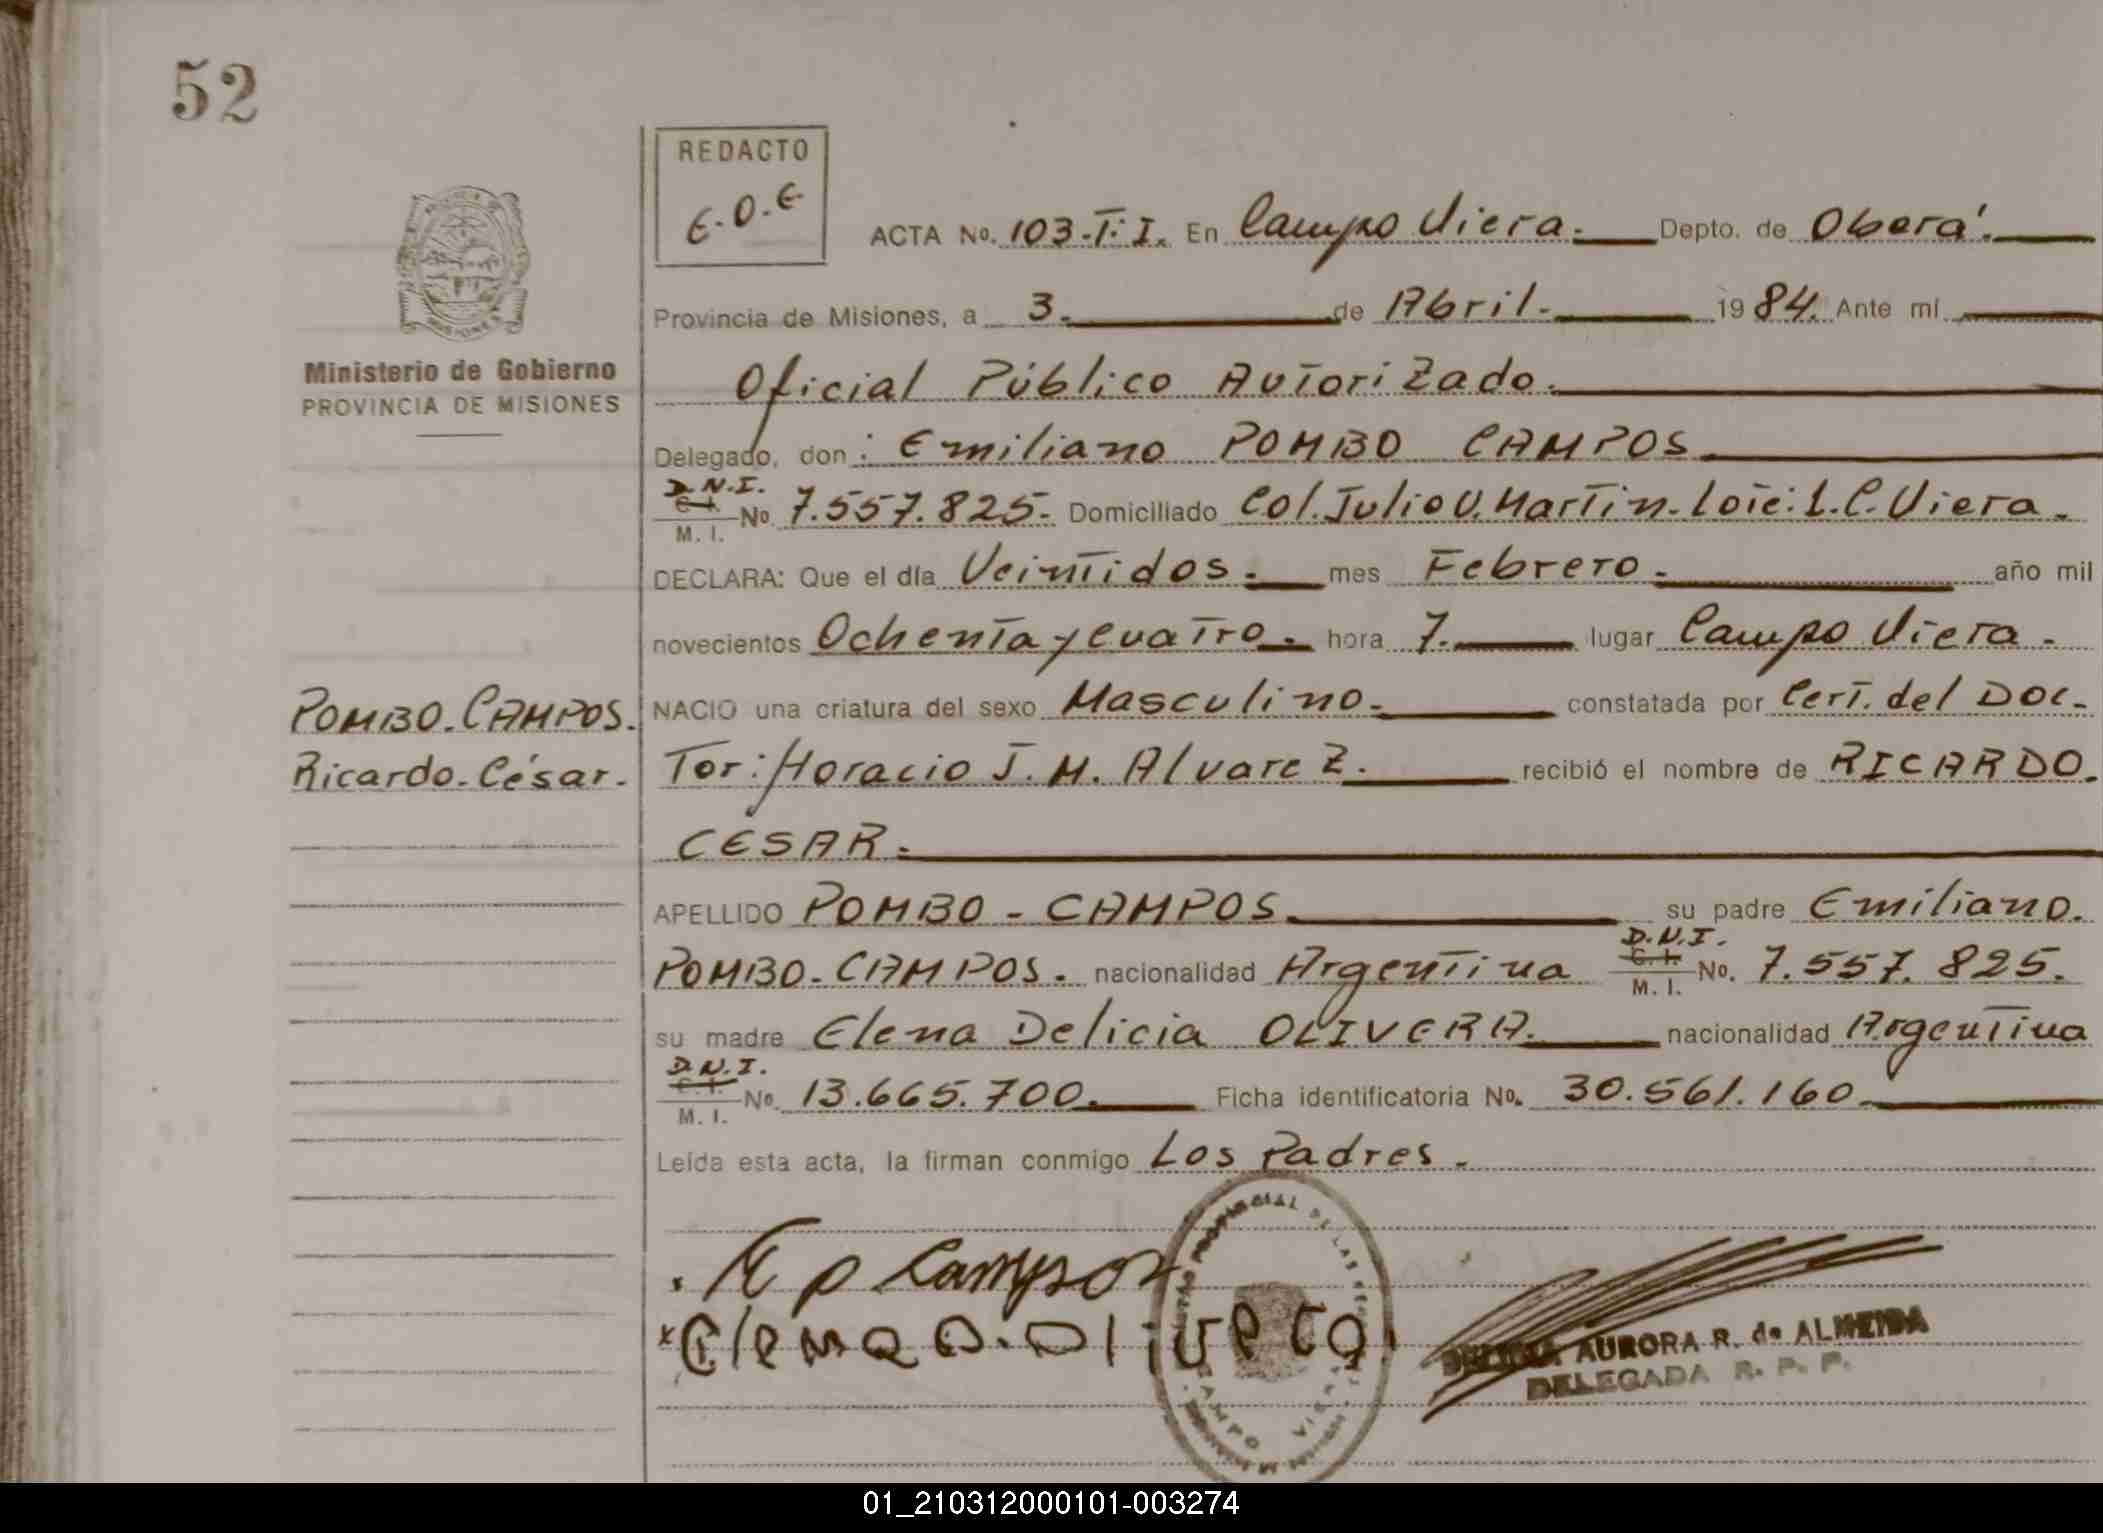 52
REDACTO
E.O.E
ACTA No. 103-T:I. En Campo Viera. Depto. de Oberá.
Provincia de Misiones, a 3. de Abril. 1984. Ante mí
Ministerio de Gobierno
PROVINCIA DE MISIONES
Oficial Público Autorizado.
Delegado, don: Emiliano POMBO CAMPOS
D.N.I.
C. I.
M. I.
No 7.557.825. Domiciliado Col. Julio U. Martin. Lote: 1. C. Viera.
DECLARA: Que el día Veintidos. mes Febrero. año mil
novecientos Ochenta y Cuatro. hora 7. lugar Campo Viera.
POMBO. CAMPOS.
Ricardo. César.
NACIO una criatura del sexo Masculino. constatada por Cert. del Doc-
Tor: Horacio J. M. Alvarez. recibió el nombre de RICARDO.
CESAR.
APELLIDO POMBO - CAMPOS su padre Emiliano.
POMBO-CAMPOS. nacionalidad Argentina
D.N.I.
C. I.
M. I.
No. 7.557.825.
su madre Elena Delicia OLIVERA. nacionalidad Argentina
D.N.I.
C. I.
M. I.
No. 13.665.700. Ficha identificatoria No. 30.561.160
Leída esta acta, la firman conmigo Los Padres.
E P Campos
Elena D. Olivera
CAMPO VIERA
AURORA R. de ALMEIDA
DELEGADA R. P. P.
01_210312000101-003274